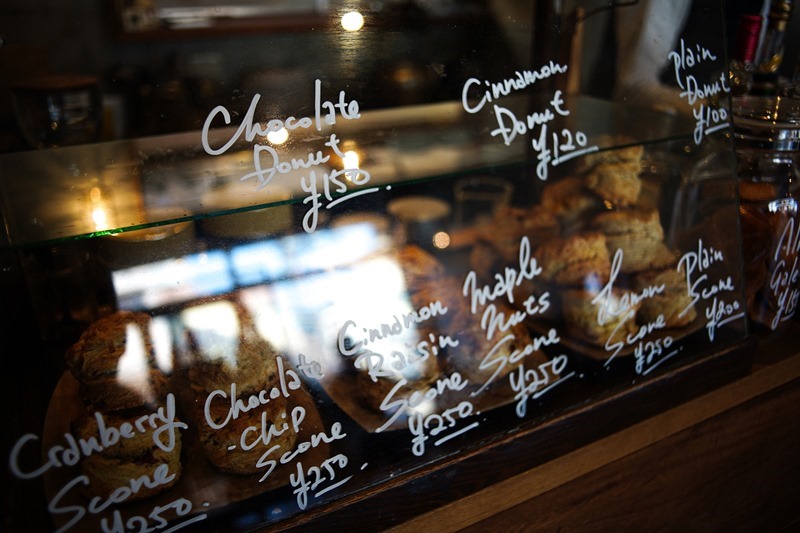 Chocolate
Donut
¥150.
Cinnamon
Donut
¥120
Plain
Donut
¥100
Cranberry
Scone
¥250.
Chocolate
-Chip
Scone
¥250.
Cinnamon
Raisin
Scone
¥250.
Maple
Nuts
Scone
¥250.
Lemon
Scone
¥250.
Plain
Scone
¥200